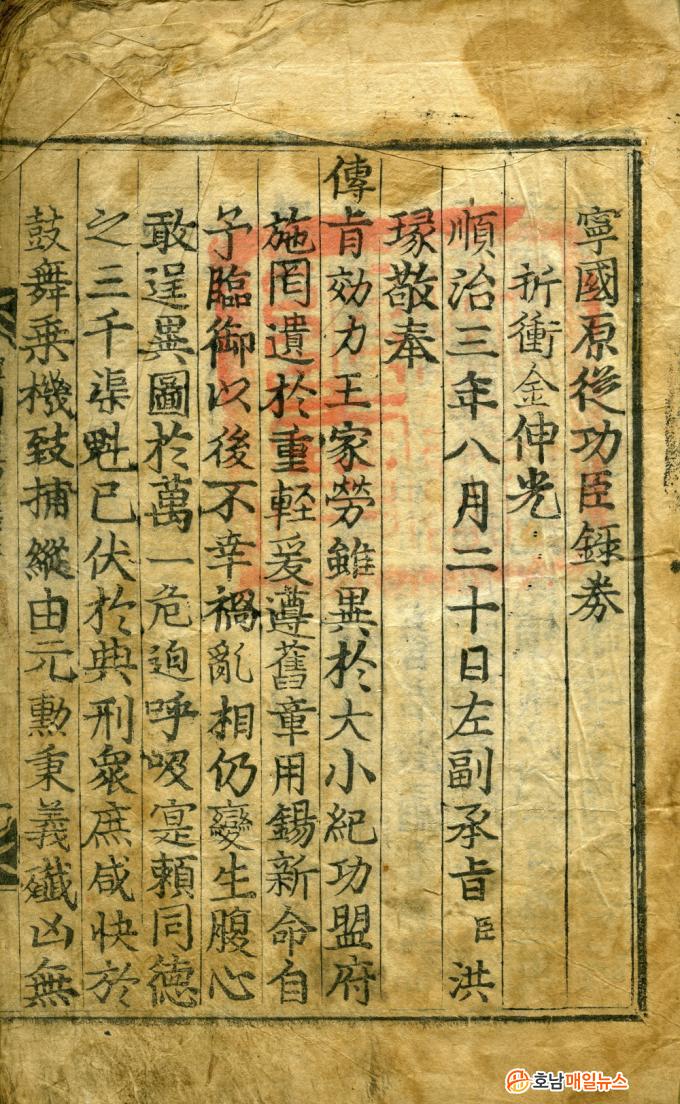 寧國原從功臣錄券
折衝金伸光
順治三年八月二十日左副承旨臣洪
瑑敬奉
傳旨効力王家勞雖異於大小紀功盟府
施罔遺於重輕爰遵舊章用錫新命自
予臨御以後不幸禍亂相仍變生腹心
敢逞異圖於萬一危迫呼吸寔賴同德
之三千渠魁已伏於典刑衆庶咸快於
鼓舞乘機致捕縱由元勳秉義殲凶無
호남매일뉴스